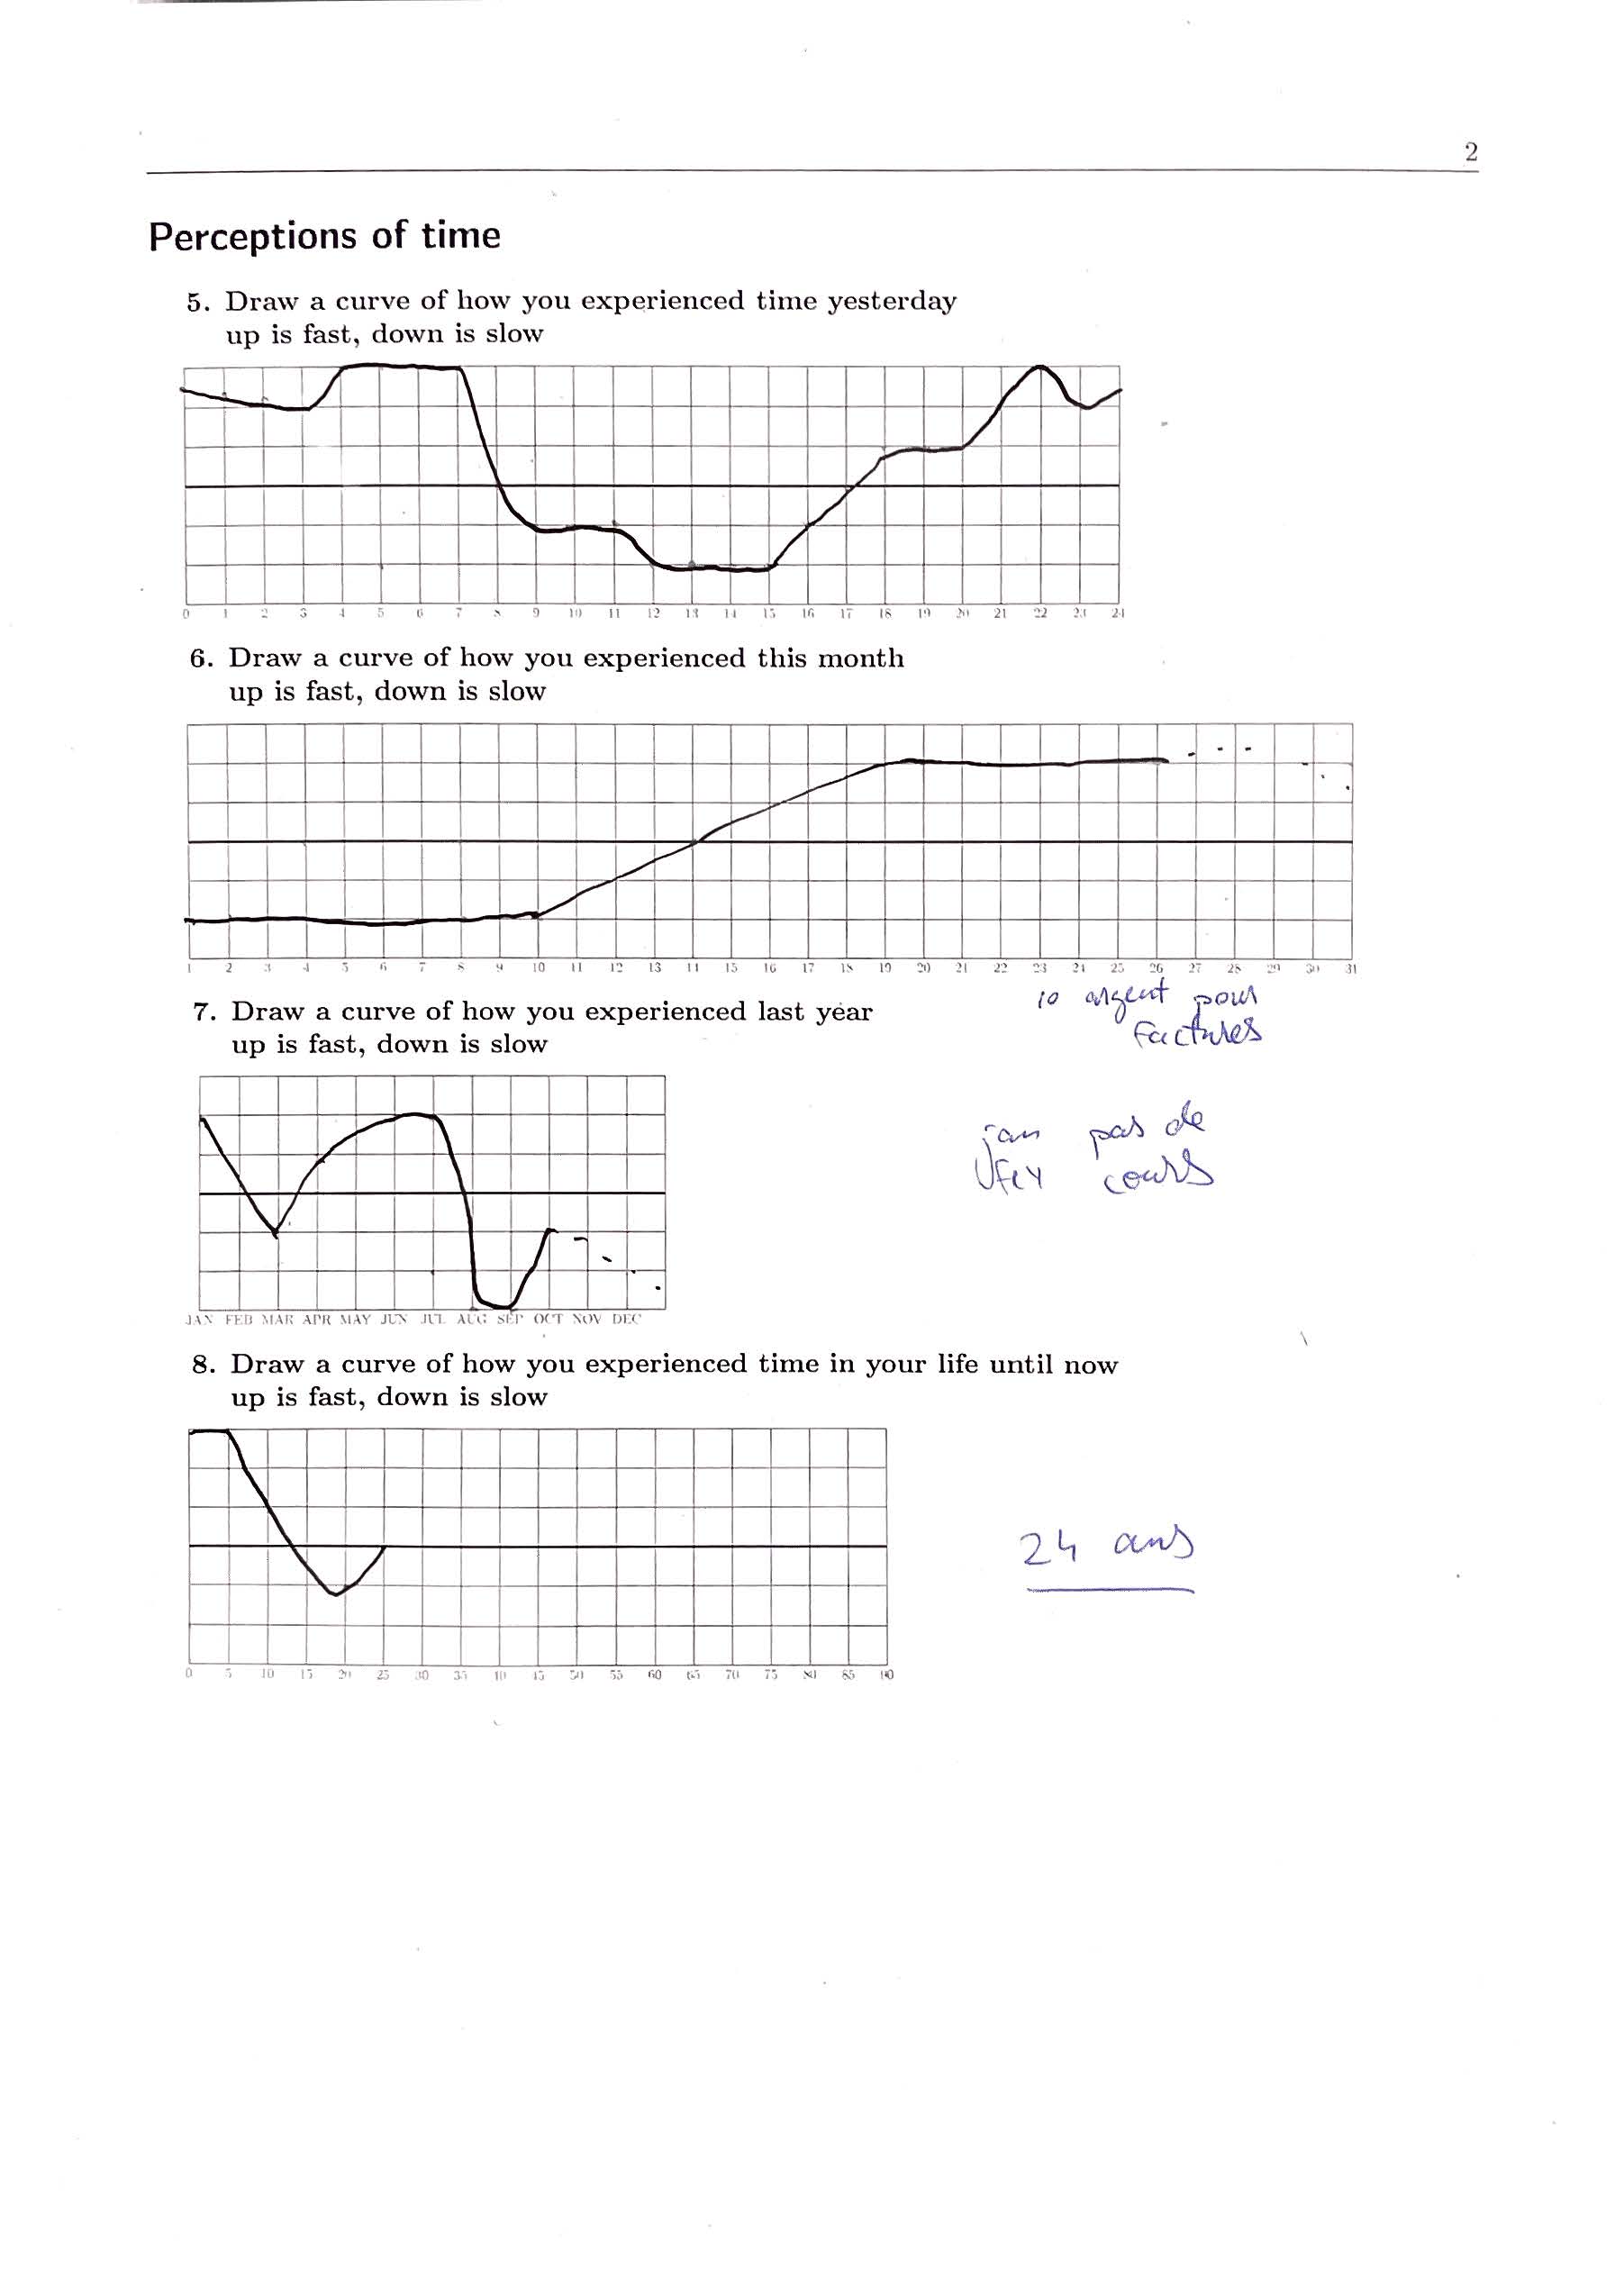 2
Perceptions of time
5. Draw a curve of how you experienced time yesterday
up is fast, down is slow
0 1 2 3 4 5 6 7 8 9 10 11 12 13 14 15 16 17 18 19 20 21 22 23 24
6. Draw a curve of how you experienced this month
up is fast, down is slow
1 2 3 4 5 6 7 8 9 10 11 12 13 14 15 16 17 18 19 20 21 22 23 24 25 26 27 28 29 30 31
10 argent pour
factures
7. Draw a curve of how you experienced last year
up is fast, down is slow
jan pas de
cours
JAN FEB MAR APR MAY JUN JUL AUG SEP OCT NOV DEC
8. Draw a curve of how you experienced time in your life until now
up is fast, down is slow
24 ans
0 5 10 15 20 25 30 35 40 45 50 55 60 65 70 75 80 85 90